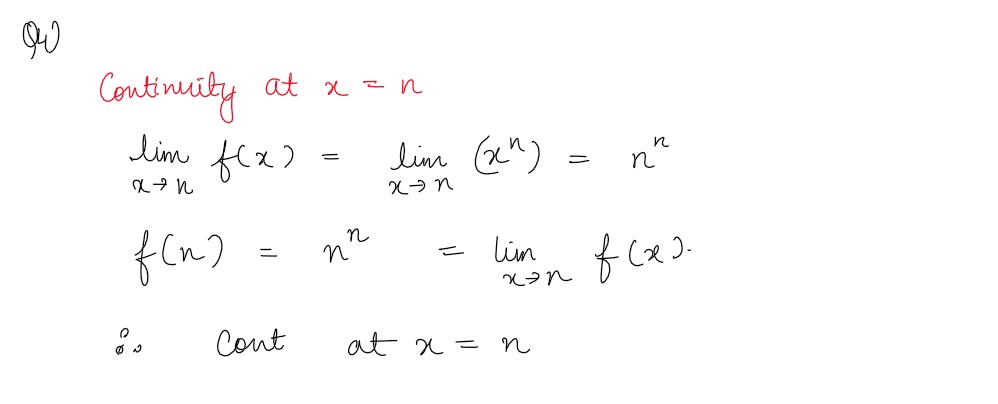 Q4)
Continuity at x = n
lim x→n f(x) = lim x→n (xⁿ) = nⁿ
f(n) = nⁿ = lim x→n f(x).
∴ Cont at x = n